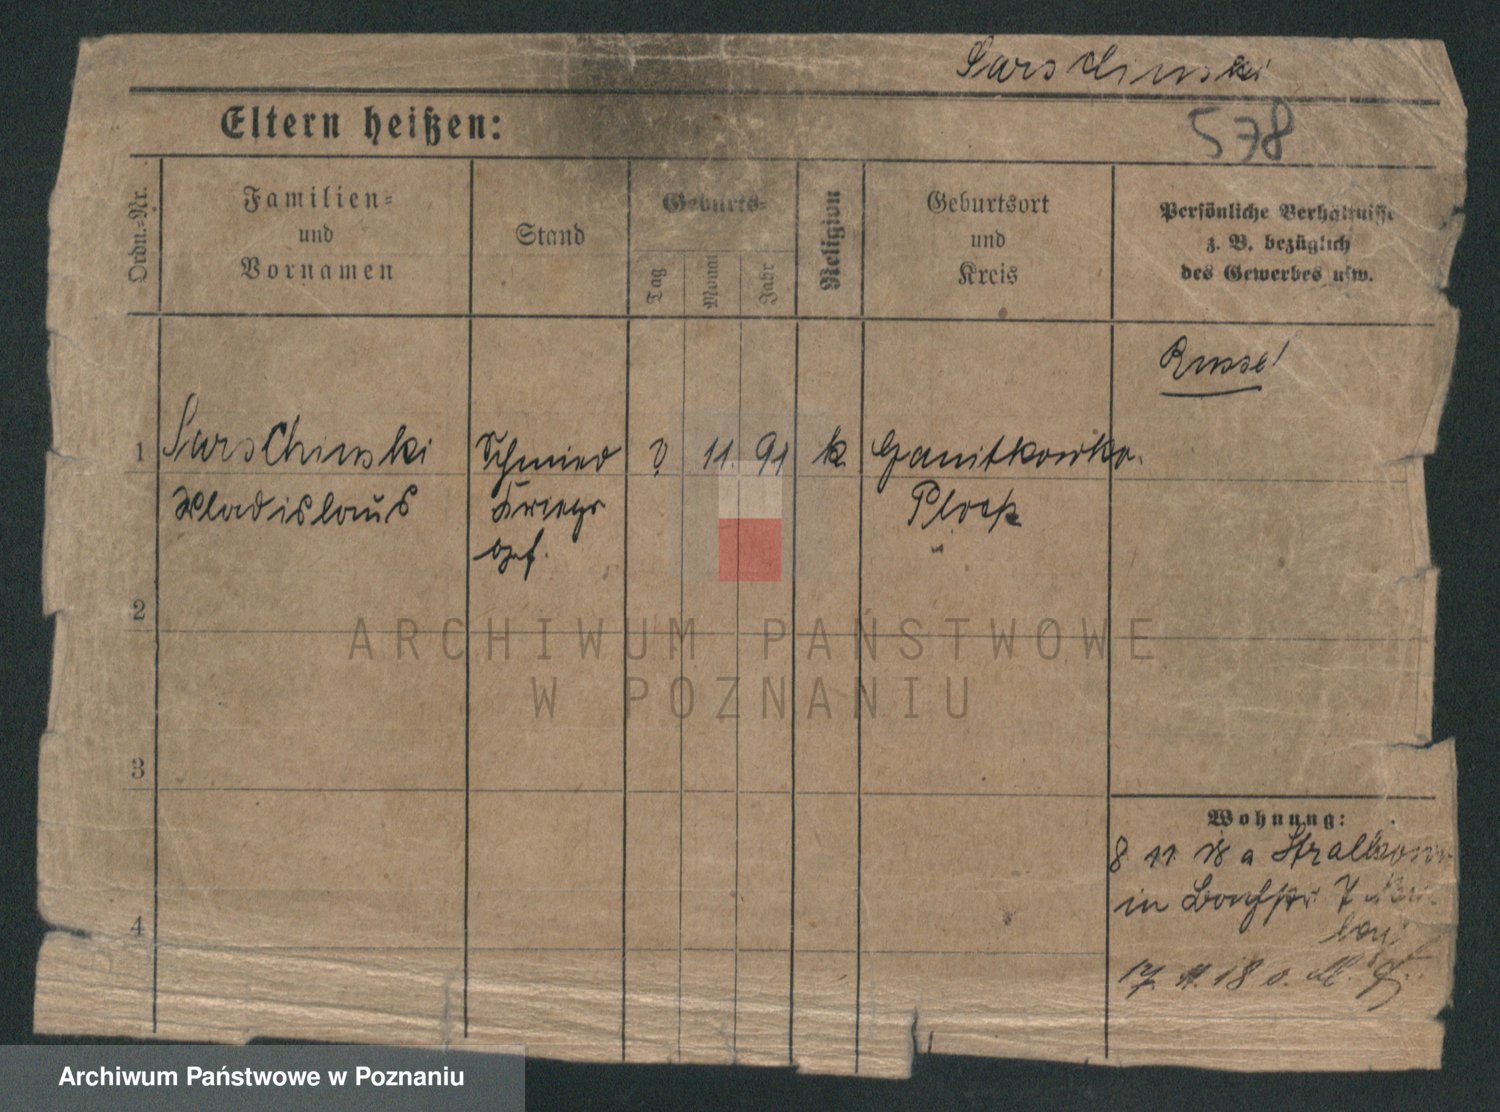 Sarschinski
578
Eltern heißen:
Ordn.-Nr.
Familien-
und
Vornamen
Stand
Geburts-
Tag
Monat
Jahr
Religion
Geburtsort
und
Kreis
Persönliche Verhältnisse
z. B. bezüglich
des Gewerbes usw.
Russe!
1 Sarschinski Schmied ? 11. 91 k. Ganitkowko.
Wladislaus Kriegs Plock
gef.
2
3
4
Wohnung:
8 11 18 a Stralkowo
in
17. 11. 18
ARCHIWUM PAŃSTWOWE
W POZNANIU
Archiwum Państwowe w Poznaniu